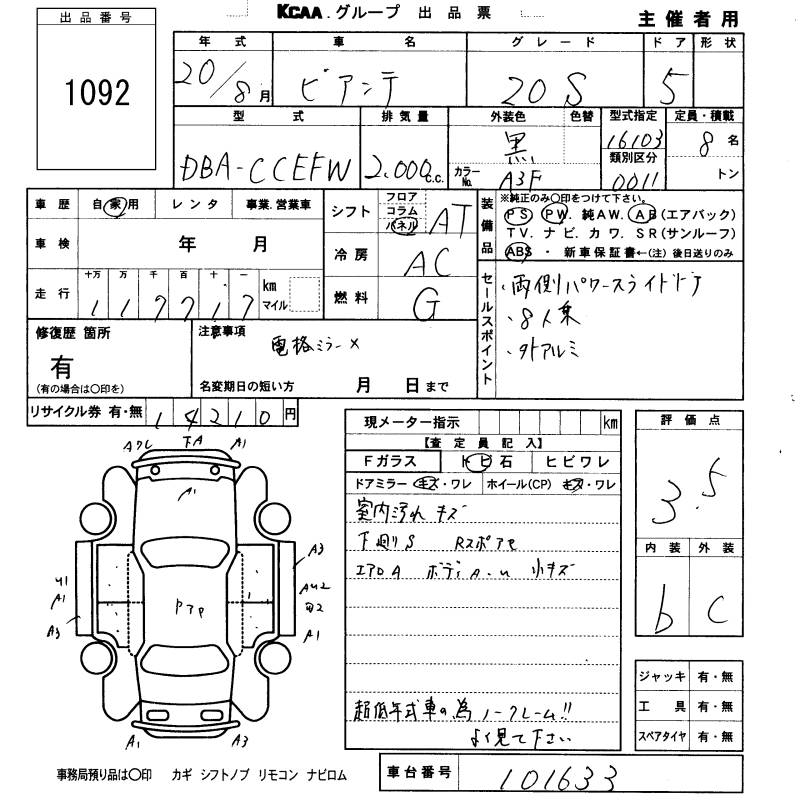 KCAA. グループ 出品票
主催者用
出品番号
1092
年式 車名 グレード ドア 形状
20/8月 ビアンテ 20S 5
型式 排気量 外装色 色替 型式指定 定員・積載
DBA-CCEFW 2.000c.c. 黒 16103 8名
カラーNo. A3F 類別区分 0011 トン
車歴 自家用 レンタ 事業.営業車
車検 年 月
走行 十万 万 千 百 十 一 km マイル
117717
シフト フロア コラム パネル AT
冷房 AC
燃料 G
装備品 ※純正のみ○印をつけて下さい。
PS PW. 純AW. AB(エアバック)
TV. ナビ. カワ. SR(サンルーフ)
ABS ・ 新車保証書←(注)後日送りのみ
セールスポイント
・両側パワースライドドア
・8人乗
・外アルミ
修復歴 箇所
有
(有の場合は○印を)
注意事項
電格ミラー×
名変期日の短い方 月 日まで
リサイクル券 有・無 14210円
現メーター指示 km
【査定員記入】
Fガラス トビ石 ヒビワレ
ドアミラー キズ・ワレ ホイール(CP) キズ・ワレ
室内汚れ キズ
下廻りS RスポアA
エアロA ボディA.U 小キズ
超低年式車の為 ノークレーム!!
よく見て下さい
評価点
3.5
内装 外装
b C
ジャッキ 有・無
工具 有・無
スペアタイヤ 有・無
Aワレ 下A A1
A1
A3
U1
A1
A3
AU2
A1
A1 A3
事務局預り品は○印 カギ シフトノブ リモコン ナビロム
車台番号 101633